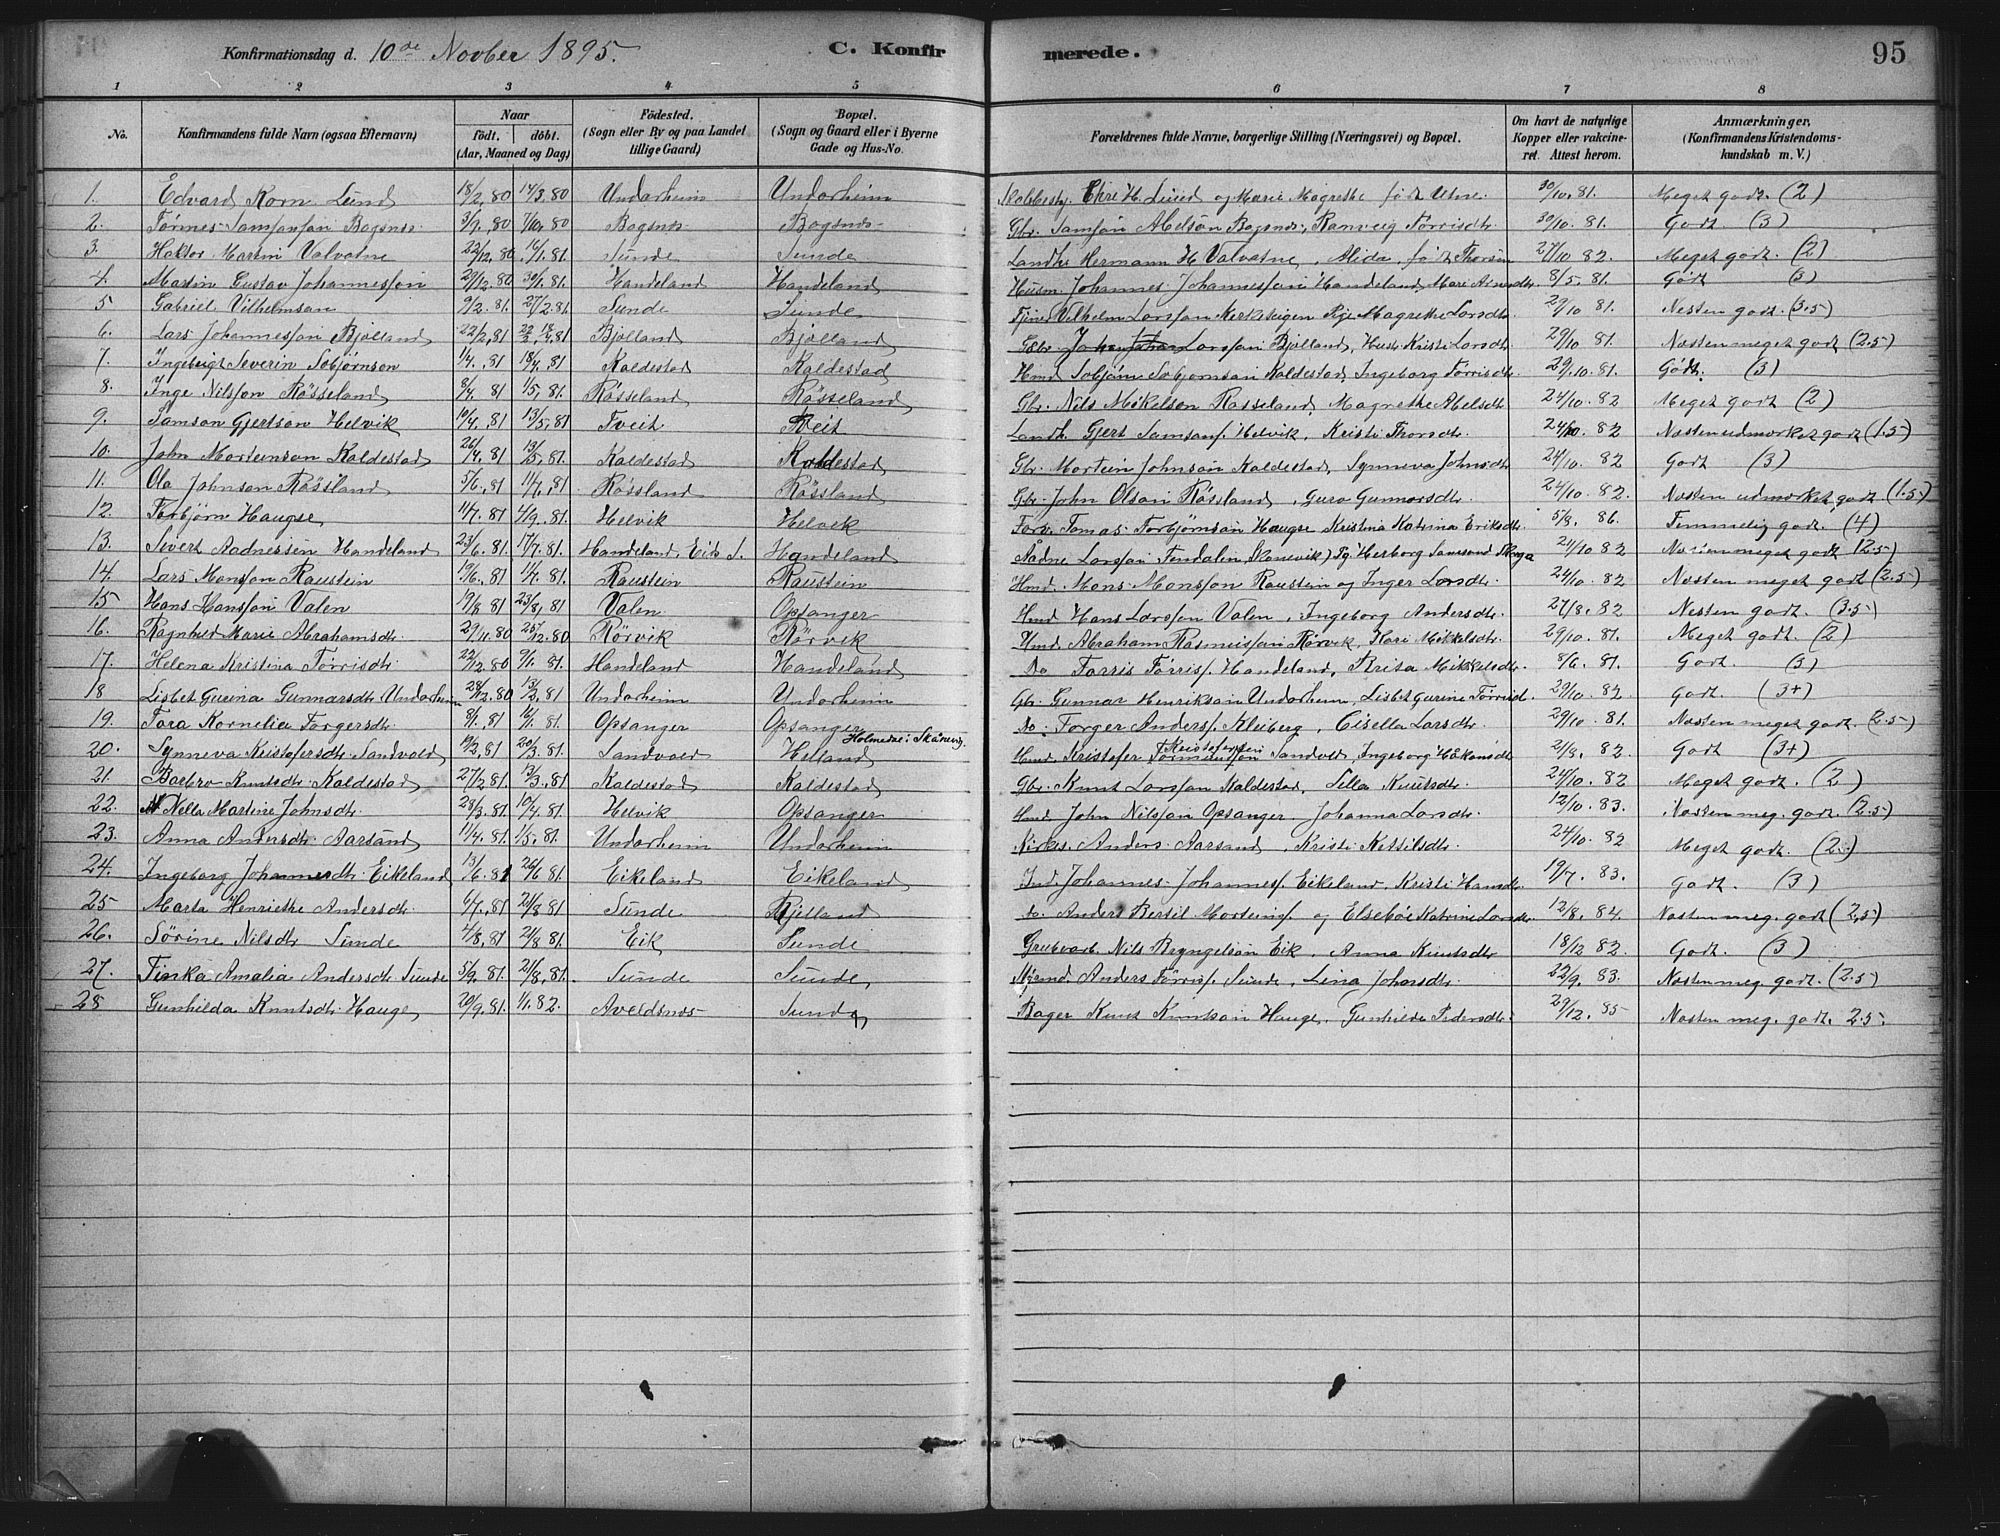 Konfirmationsdag d. 10de Novber 1895. C. Konfirmerede. 95
1 2 3 4 5 6 7 8
No. Konfirmandens fulde Navn (ogsaa Efternavn) Naar födt. döbt. (Aar, Maaned og Dag) Födested. (Sogn eller By og paa Landet tillige Gaard) Bopæl. (Sogn og Gaard eller i Byerne Gade og Hus-No. Forældrenes fulde Navne, borgerlige Stilling (Næringsvei) og Bopæl. Om havt de naturlige Kopper eller vakcineret. Attest herom. Anmærkninger, (Konfirmandens Kristendomskundskab m. V.)
1. Edvard Korn Lund 18/2,80 14/3.80 Undarheim Undarheim H. Lund og Marie Magrethe född Utne. 30/10.81. Meget godt. (2)
2. Tørres Samsonson Bogsnes 3/9,80 7/10,80 Bogsnes Bogsnes Gbr. Samson Abelson Bogsnes, Ranveig Tørrisdtr. 30/10.81. Godt. (3)
3. Haktor Martin Valvatne 22/12,80 16/1.81. Sunde Sunde Landh. Hermann H. Valvatne, Alida född Thorsen 27/10 82. Meget godt. (2)
4. Martin Gustav Johannesson 29/12.80 30/1.81. Handeland Handeland Husm. Johannes Johannesson Handeland, Mari 8/5.81. Godt (3)
5 Gabriel Vilhelmson 9/2.81. 27/2.81. Sunde Sunde Vilhelm Larsson Magrethe Larsdtr. 29/10 81. Nesten godt. (3.5)
6. Lars Johannesson Bjölland 22/2,81 Bjölland Bjölland Gbr. Larsson Bjölland, Hust. Kristi Larsdtr. 29/10 81. Næsten meget godt (2.5)
7. Ingebrigt Severin Sebjørnson 1/4.81 18/4.81 Kaldestad Kaldestad Hmd Sebjörn Sebjörnson Kaldestad, Ingeborg Tørrisdtr. 29/10.81. Godt. (3)
8. Inge Nilsson Rösseland 8/4 81 1/5,81. Rösseland Rösseland Gbr. Nils Mikelson Rösseland, Magrethe Abelsdtr. 24/10.82 Meget godt (2)
9. Samson Gjertson Helvik 10/4,81 13/5,81 Tveit Tveit Landh. Gjert Samsons. Helvik, Kristi Thorsdtr. 24/10.82 Næsten udmerket godt (1.5)
10. John Morteinson Kaldestad 26/4.81 13/5.81. Kaldestad Kaldestad Gbr. Mortein Johnson Kaldestad, Synneva Johnsdtr. 24/10.82 Godt (3)
11. Ola Johnson Rössland 5/6,81 11/7,81 Rössland Rössland Gbr. John Olson Rössland, Guro Gunnarsdtr. 24/10.82. Næsten udmerket godt (1.5)
12. Torbjörn Haugse 11/7.81 4/9.81. Helvik Helvik Forv. Tomas Torbjörnson Haugse Kristina Katrina Eriksdtr. 5/8.86. Temmelig godt. (4)
13. Sivert Aadnessen Handeland 23/6.81. 17/7.81. Handeland, Eik S. Handeland Aadne Larsson Tendalen, (Skonevik) Pg. Herborg Samsond. 24/10 82 Næsten meget godt (2.5)
14. Lars Monsson Raustein 19/6.81 11/7.81. Raustein Raustein Hmd. Mons Monsson Raustein og Inger Larsdtr. 24/10.82 Næsten meget godt (2.5)
15 Hans Hansson Valen 19/8 81 23/8.81 Valen Opsanger Hmd Hans Larsson Valen, Ingeborg Andersdtr. 27/8.82 Nesten godt. (3.5)
16. Ragnhild Marie Abrahamsdtr. 29/11.80 25/12.80 Rörvik Rörvik Hmd Abraham Rasmusson Rörvik, Kari Mikkelsdtr. 29/10.81. Meget godt. (2)
17. Helena Kristina Tørrisdtr. 22/12 80 9/1.81. Handeland Handeland Do Tørris Tørriss. Handeland, Brita Mikkelsdtr. 8/6.81. Godt. (3)
18 Lisbet Gurina Gunnarsdtr Undarheim 28/12.80 13/2.81 Undarheim Undarheim Gbr. Gunnar Henrikson Undarheim, Lisbet Gurine Tørrisd. 29/10.82. Godt. (3+)
19. Tora Kornelia Torgersdtr. 8/1.81 16/1.81. Opsanger Opsanger do. Torger Anders. Kleiberg, Gisella Larsdtr. 29/10.81. Næsten meget godt. (2.5)
20. Synneva Kristofersdtr. Sandvold 19/2,81 20/3.81. Sandvold Helland Holmedal i Skånevig. Hmd Kristofer Kristofersen Sandvold, Ingeborg Håkonsdtr 2/8.82. Godt (3+)
21. Barbro Knutsdtr. Kaldestad 27/2 81 13/3,81 Kaldestad Kaldestad Gbr. Knut Larsson Kaldestad, Silla Knutsdtr. 24/10.82 Meget godt. (2)
22. Nella Martine Johnsdtr. 28/3.81. 10/4.81. Helvik Opsanger Hmd John Nilsson Opsanger. Johanna Larsdtr. 12/10.83. Næsten meg. godt. (2.5)
23. Anna Andersdtr. Aarsand 11/4.81. 1/5.81. Undarheim Undarheim Anders Aarsand, Kristi Kettilsdtr. 24/10.82 Meget godt. (2.)
24. Ingeborg Johannesdtr. Eikeland 13/6.81 26/6 81. Eikeland Eikeland Ind. Johannes Johanness. Eikeland, Kristi Hansdtr. 19/7.83. Godt. (3)
25 Marta Henriethe Andersdtr. 6/7.81 21/8 81 Sunde Bjölland do. Anders Bertil Morteins. og Elsebøe Katrine Larsdtr 12/8.84. Næsten meg. godt (2,5)
26. Sörine Nilsdtr Sunde 4/8.81 21/8 81. Eik Sunde Grubearb. Nils Bryngelson Eik, Anna Knutsdtr 18/12 82. Godt. (3)
27. Tinka Amalia Andersdtr Sunde 5/9.81. 21/8.81. Sunde Sunde Anders Tørriss. Sunde, Lina Johnsdtr. 22/9.83. Næsten meg. godt. (2.5)
28 Gunhilda Knutsdtr. Hauge 20/9.81. 1/1.82. Aveldsnes Sunde Bager Knut Knutson Hauge, Gunhilda Pedersdtr. 29/12.85 Næsten meg. godt. 2.5.